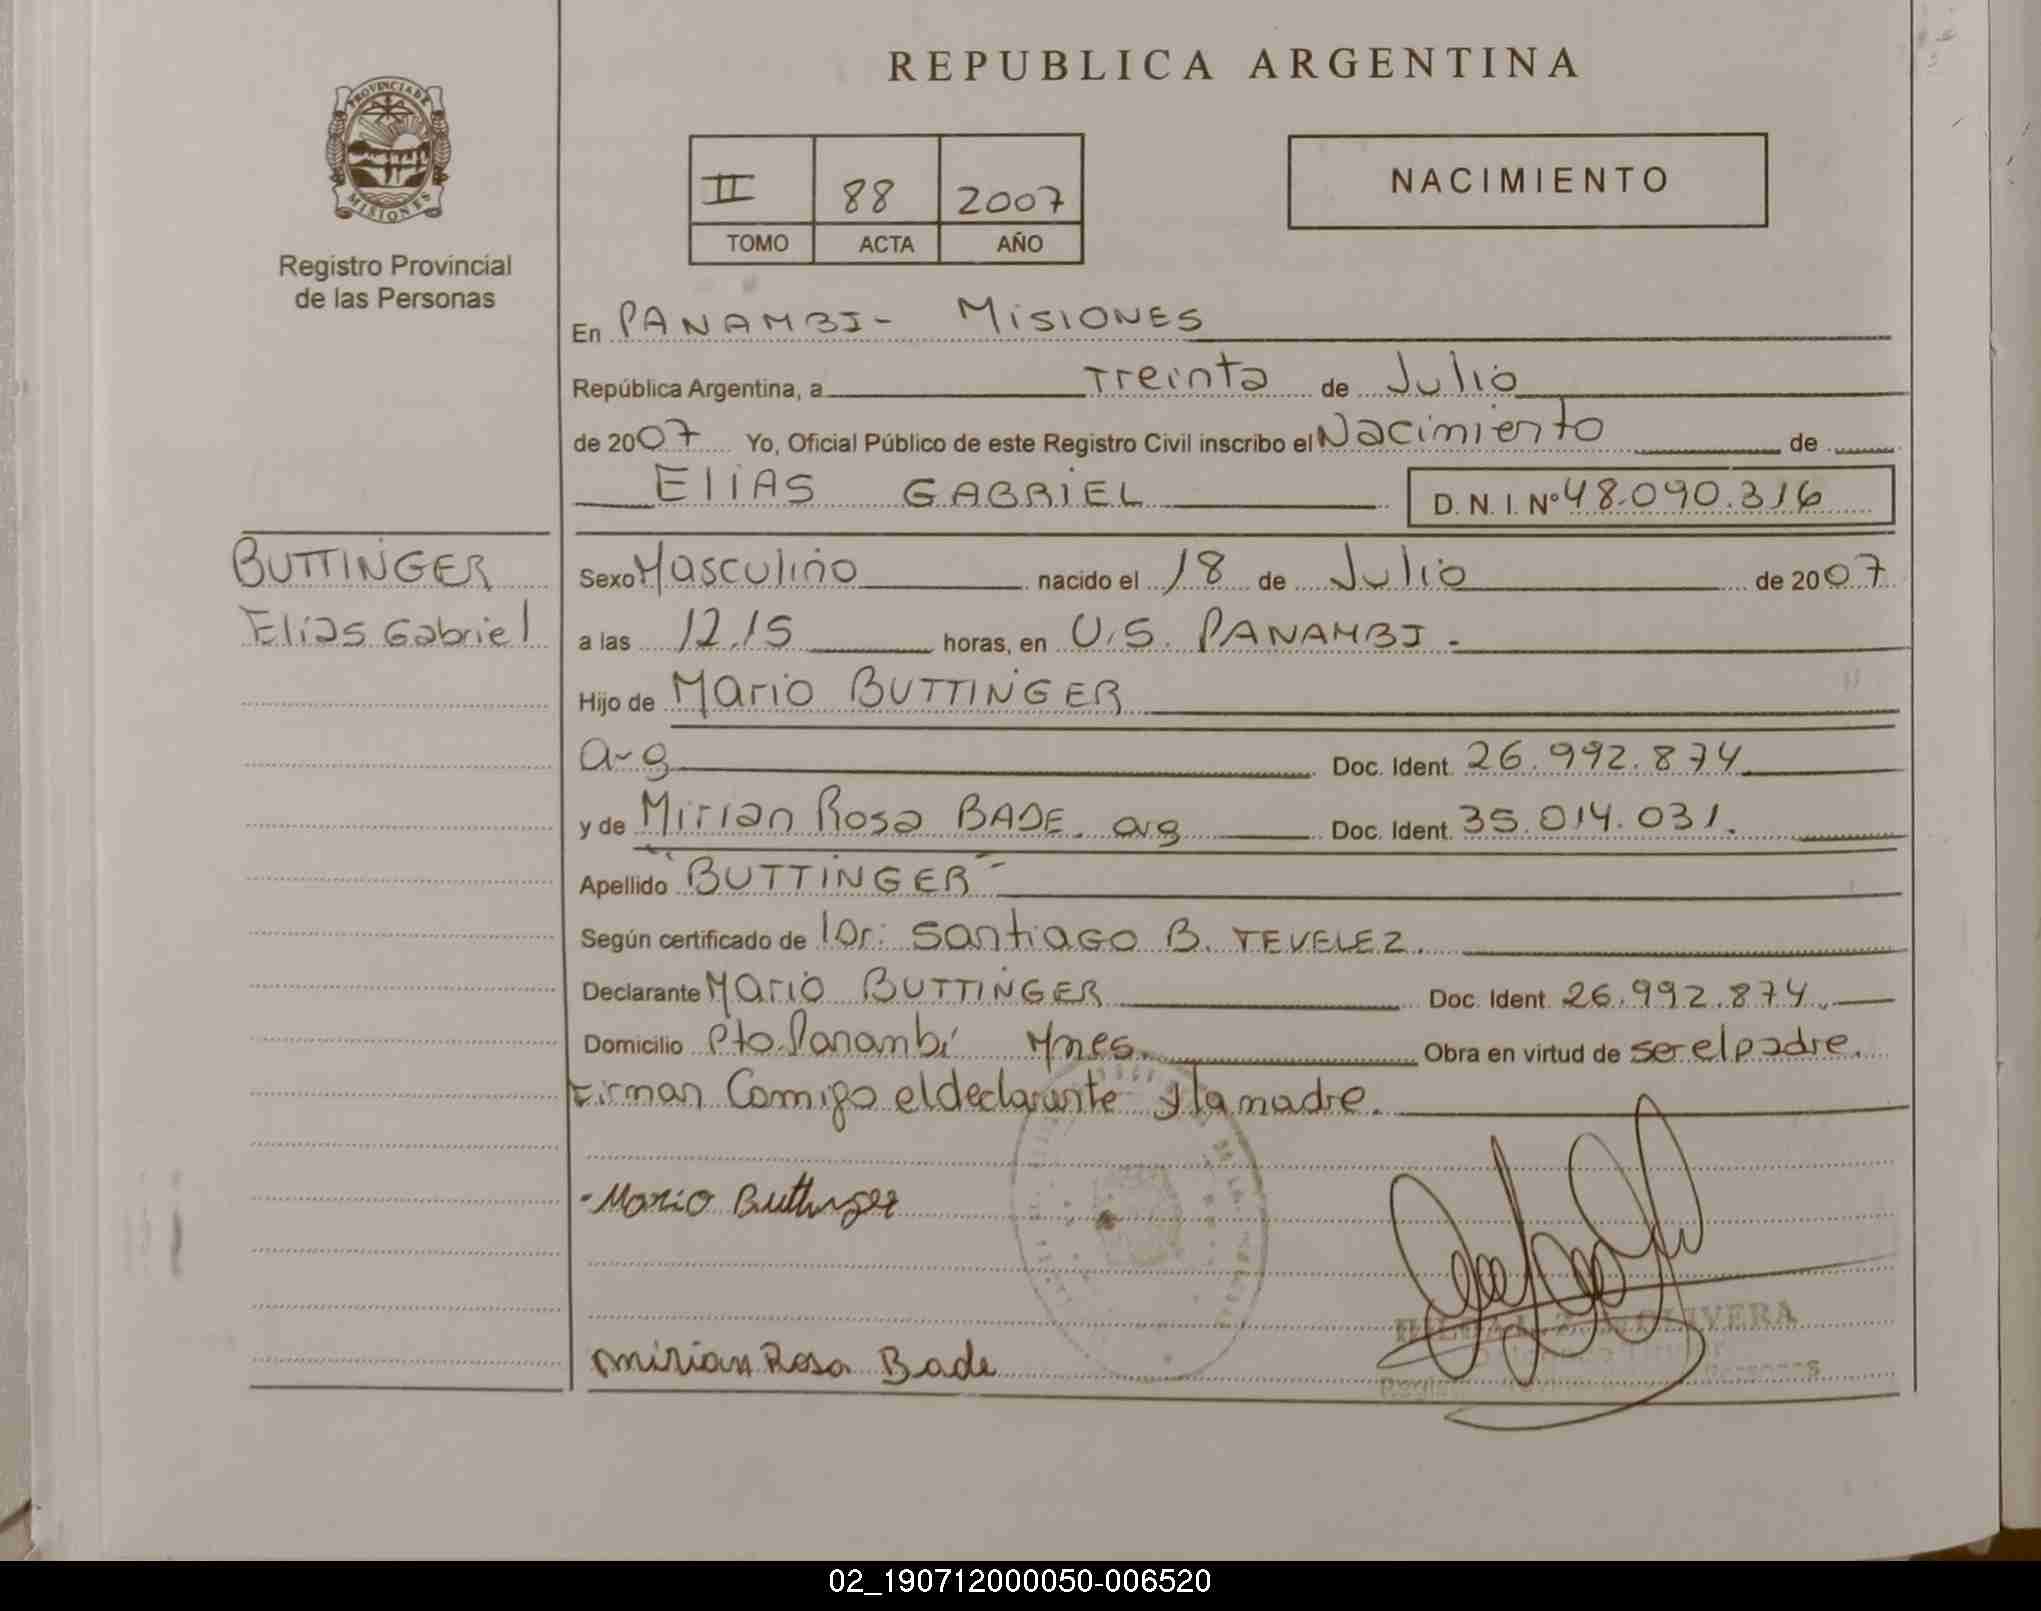 REPUBLICA ARGENTINA
PROVINCIA DE
MISIONES
Registro Provincial
de las Personas
II 88 2007
TOMO ACTA AÑO
NACIMIENTO
En PANAMBI- MISIONES
República Argentina, a Treinta de Julio
de 2007 Yo, Oficial Público de este Registro Civil inscribo el Nacimiento de
ELIAS GABRIEL D. N. I. Nº 48.090.316
BUTTINGER
Elias Gabriel
Sexo Masculino nacido el 18 de Julio de 2007
a las 12.15 horas, en U.S. PANAMBI.-
Hijo de Mario BUTTINGER
arg Doc. Ident. 26.992.874
y de Mirian Rosa BADE. arg Doc. Ident. 35.014.031.
Apellido "BUTTINGER"
Según certificado de Dr: Santiago B. TEVELEZ.
Declarante Mario BUTTINGER Doc. Ident. 26.992.874.
Domicilio Pto. Panambí Mnes. Obra en virtud de ser el padre.
Firman Comigo el declarante y la madre.
Mario Buttinger
OLIVERA
Mirian Rosa Bade
02_190712000050-006520